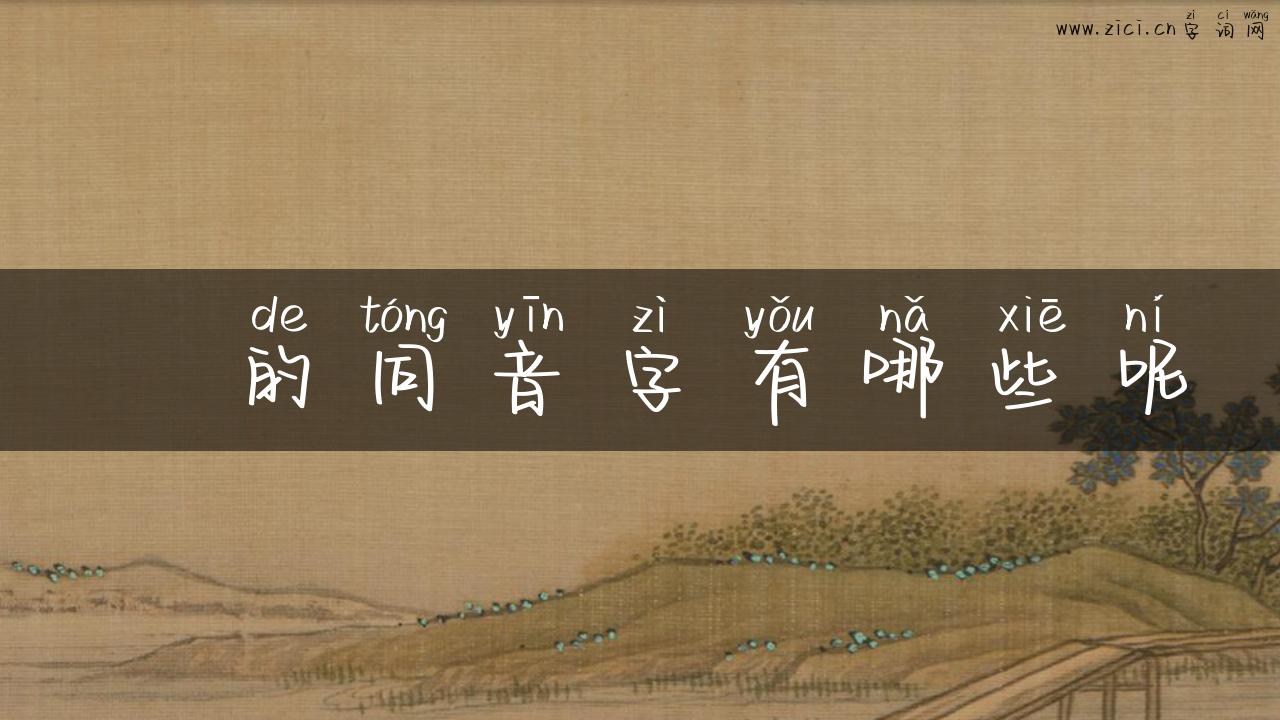 zì cí wǎng
www.zici.cn字词网
de tóng yīn zì yǒu nǎ xiē ní
的同音字有哪些呢